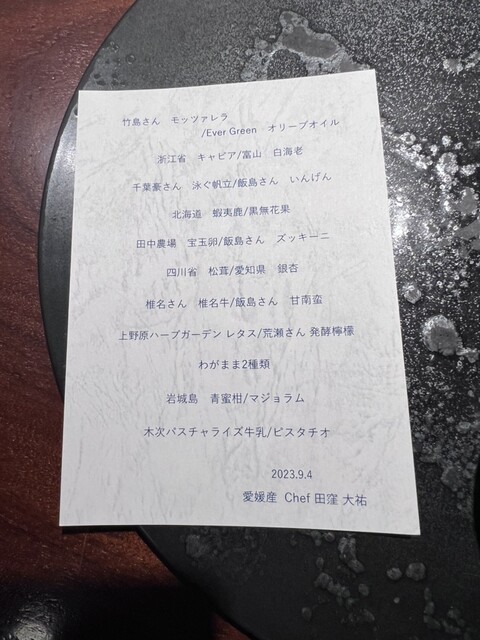 竹島さん　モッツァレラ
/Ever Green　オリーブオイル
浙江省　キャビア/富山　白海老
千葉豪さん　泳ぐ帆立/飯島さん　いんげん
北海道　蝦夷鹿/黒無花果
田中農場　宝玉卵/飯島さん　ズッキーニ
四川省　松茸/愛知県　銀杏
椎名さん　椎名牛/飯島さん　甘南蛮
上野原ハーブガーデン レタス/荒瀬さん 発酵檸檬
わがまま2種類
岩城島　青蜜柑/マジョラム
木次パスチャライズ牛乳/ピスタチオ
2023.9.4
愛媛産 Chef 田窪 大祐